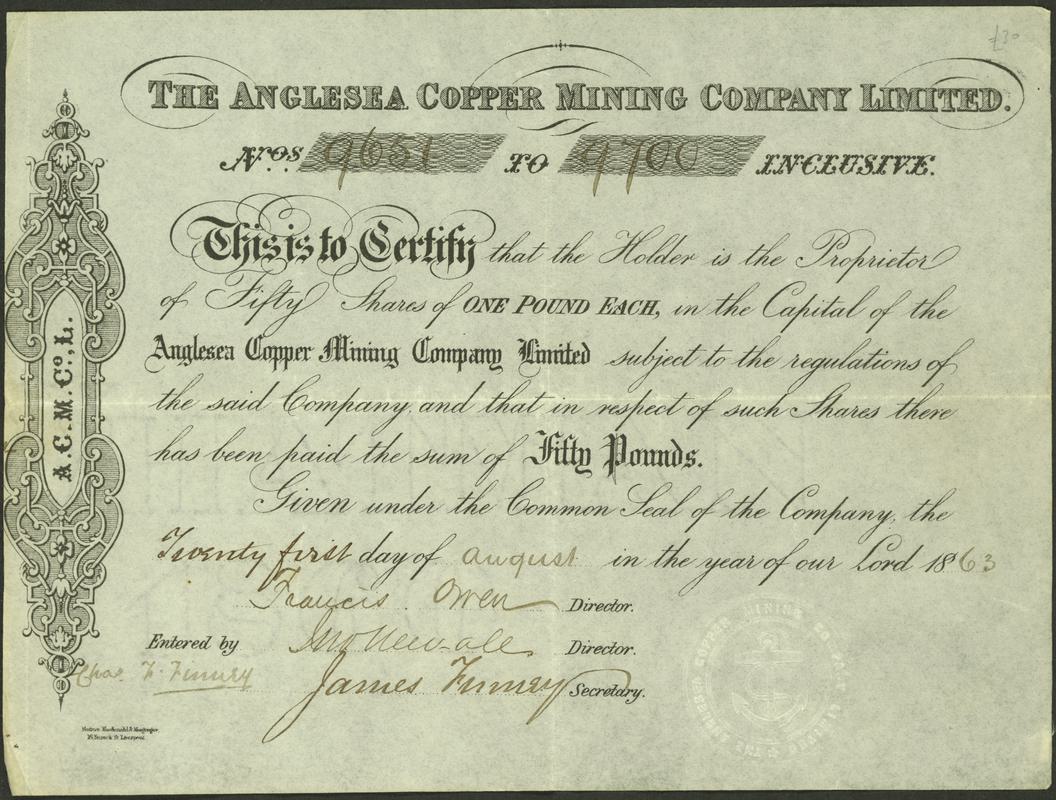 £30
THE ANGLESEA COPPER MINING COMPANY LIMITED.
Nos. 9651 TO 9700 INCLUSIVE.
This is to Certify that the Holder is the Proprietor
of Fifty Shares of ONE POUND EACH, in the Capital of the
Anglesea Copper Mining Company Limited subject to the regulations of
the said Company, and that in respect of such Shares there
has been paid the sum of Fifty Pounds.
Given under the Common Seal of the Company, the
Twenty first day of august in the year of our Lord 1863
Francis Owen Director.
Entered by Jno Newall Director.
Chas. F. Finney James Finney Secretary.
A.C.M.Co., L.
Macdonald & Macgregor,
Liverpool.
THE ANGLESEA COPPER MINING CO